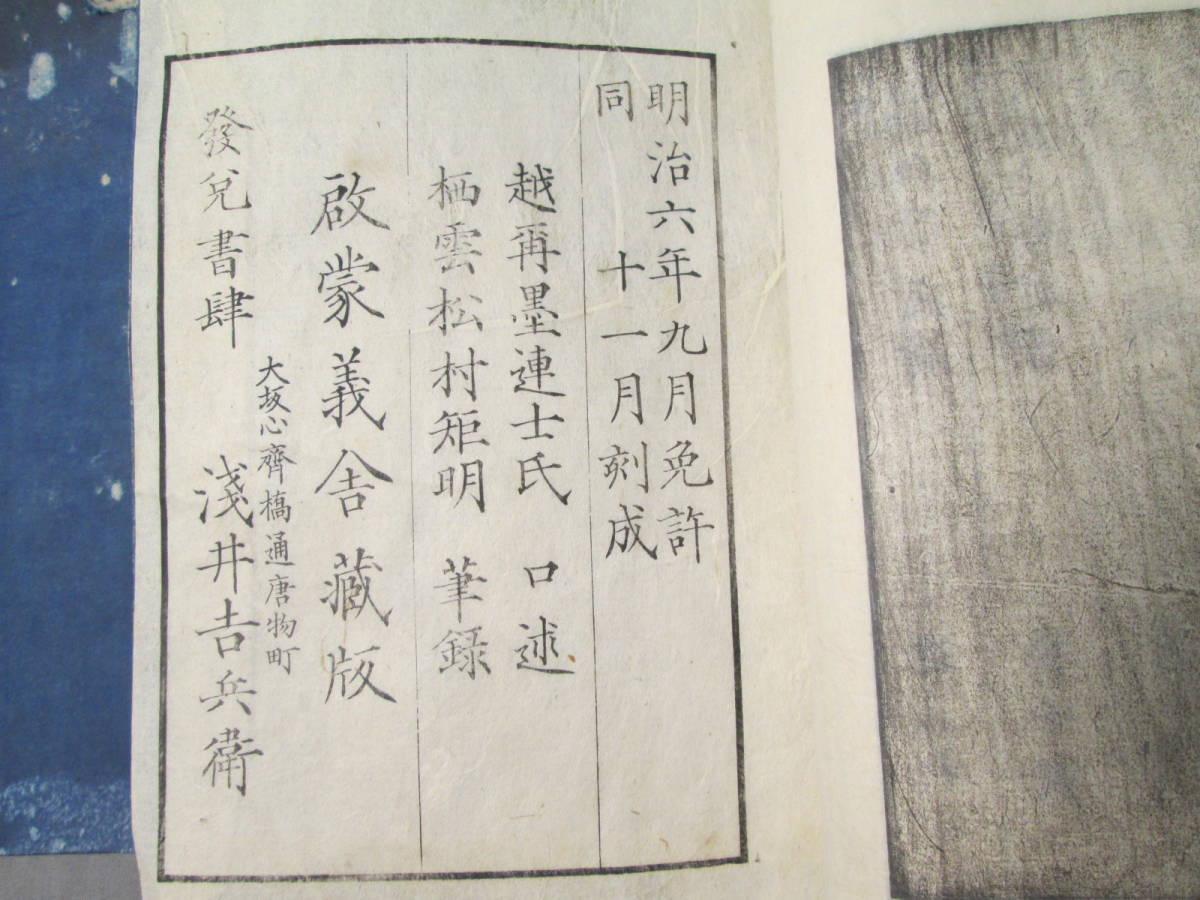 明治六年九月免許
同 十一月刻成
越爾墨連士氏 口述
栖雲松村矩明 筆録
啟蒙義舎蔵版
大坂心齊橋通唐物町
發兌書肆 淺井吉兵衛